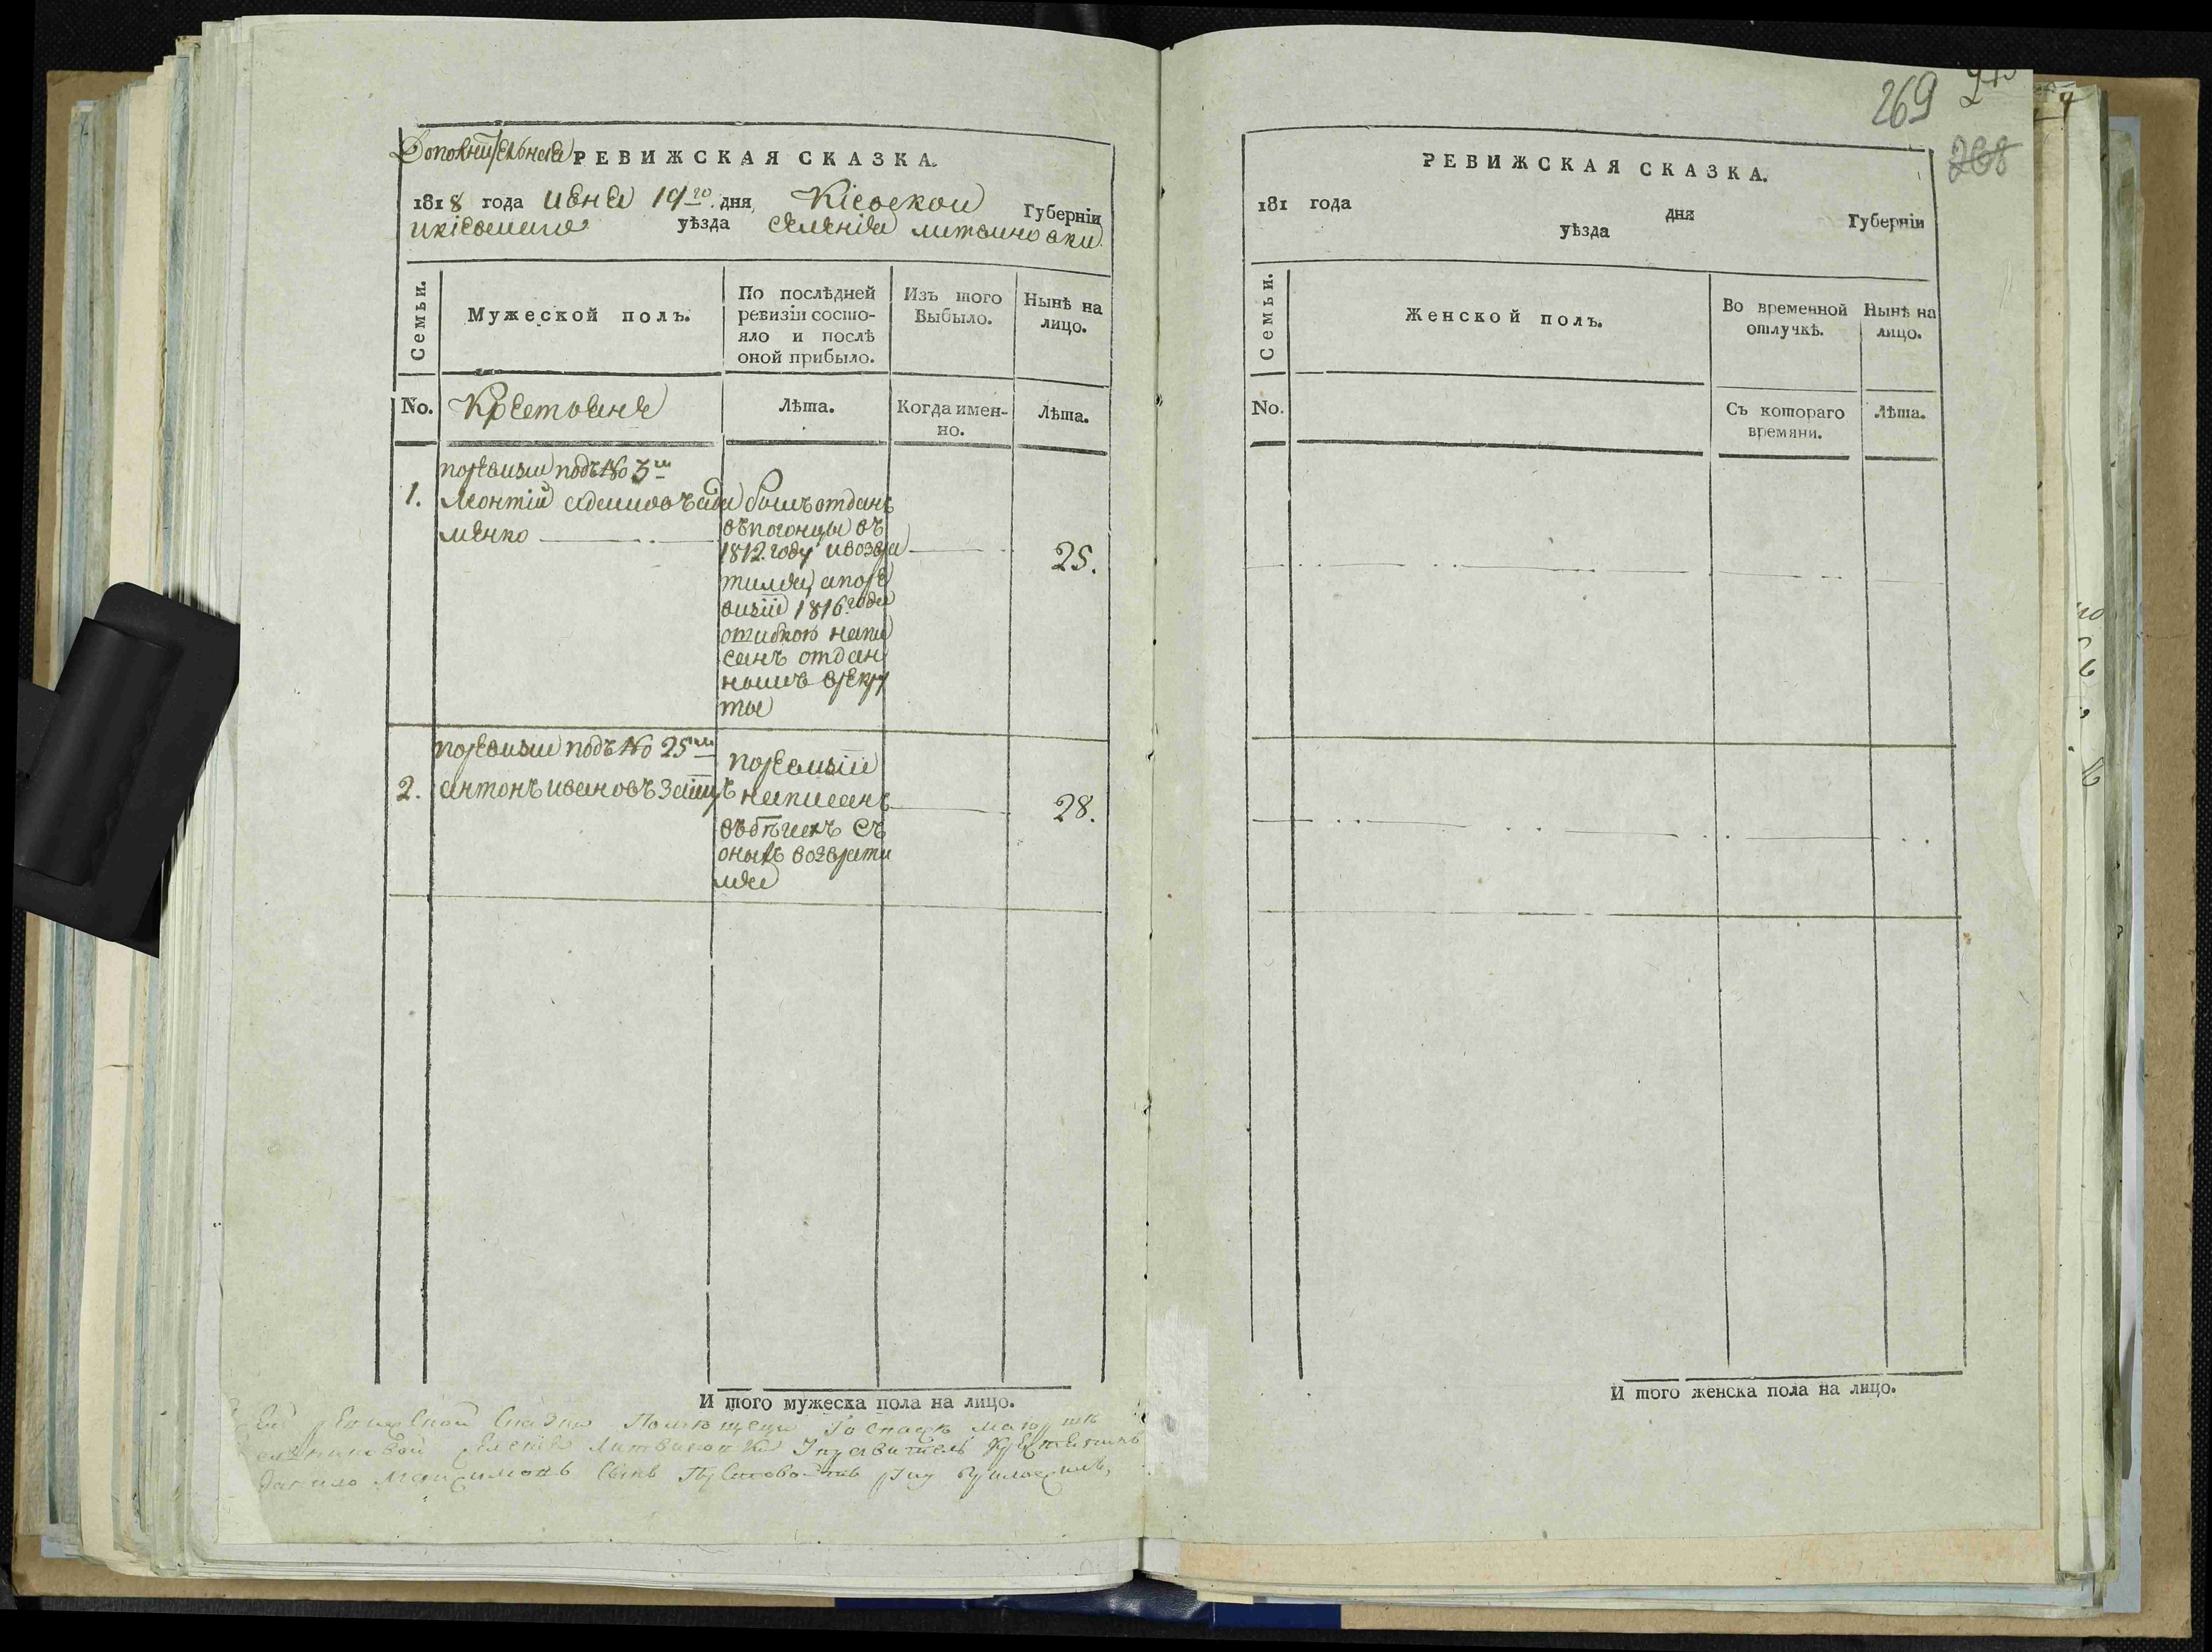 Дополнителная РЕВИЖСКАЯ СКАЗКА.
1818 года июня 19го дня, Кіевской Губерніи
икіевского уѣзда селенія литвиновки
Семьи.
Мужеской полъ.
По послѣдней
ревизіи состо-
яло и послѣ
оной прибыло.
Изъ того
Выбыло.
Нынѣ на
лицо.
No.
Крестьяне
Лѣта.
Когда имен-
но.
Лѣта.
поревизии подъ No 3м
1. Леонтій адамовъ ада
менко
былъ отданъ
въпогонцы въ
1812. году ивозвра
тился, апоре
визіи 1816 года
ошибкою напи
санъ отдан
нымъ врекру
ты
25.
поревизии подъ No 25мъ
2. антонъ ивановъ Заіцъ
поревизіи
написанъ
въбѣгахъ съ
оныхъ возврати
лся
28.
И того мужеска пола на лицо.
Ревижской Сказки Помещици Госпожи
селения Литвиновки Управитель Крестьянинъ
Данило Максимовъ Сынъ руку приложилъ,
269
268
РЕВИЖСКАЯ СКАЗКА.
181 года дня Губерніи
уѣзда
Семьи.
Женской полъ.
Во временной
отлучкѣ.
Нынѣ на
лицо.
No.
Съ котораго
времяни.
Лѣта.
И того женска пола на лицо.